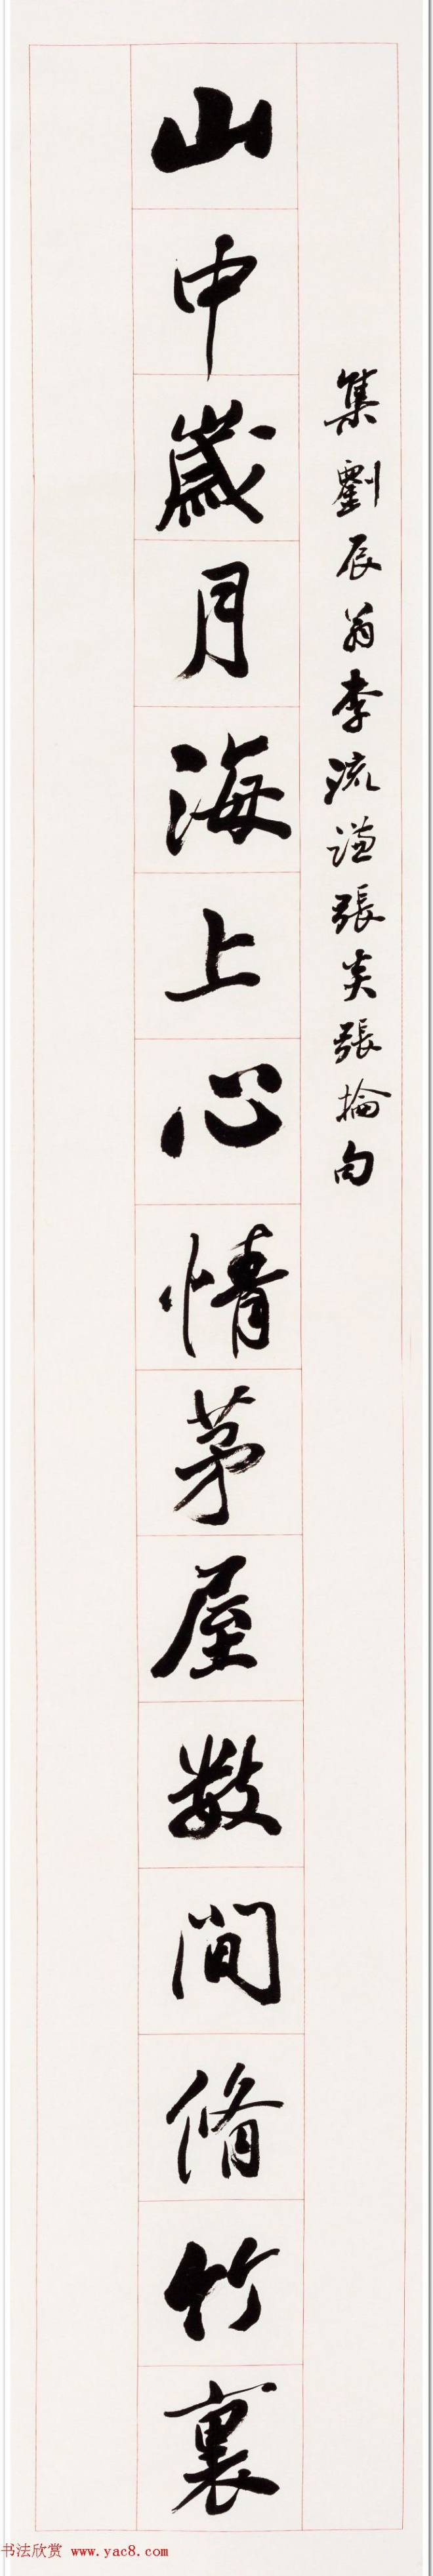 集劉辰翁李流謙張炎張掄句
山中歲月海上心情茅屋數間脩竹裏
书法欣赏 www.yac8.com